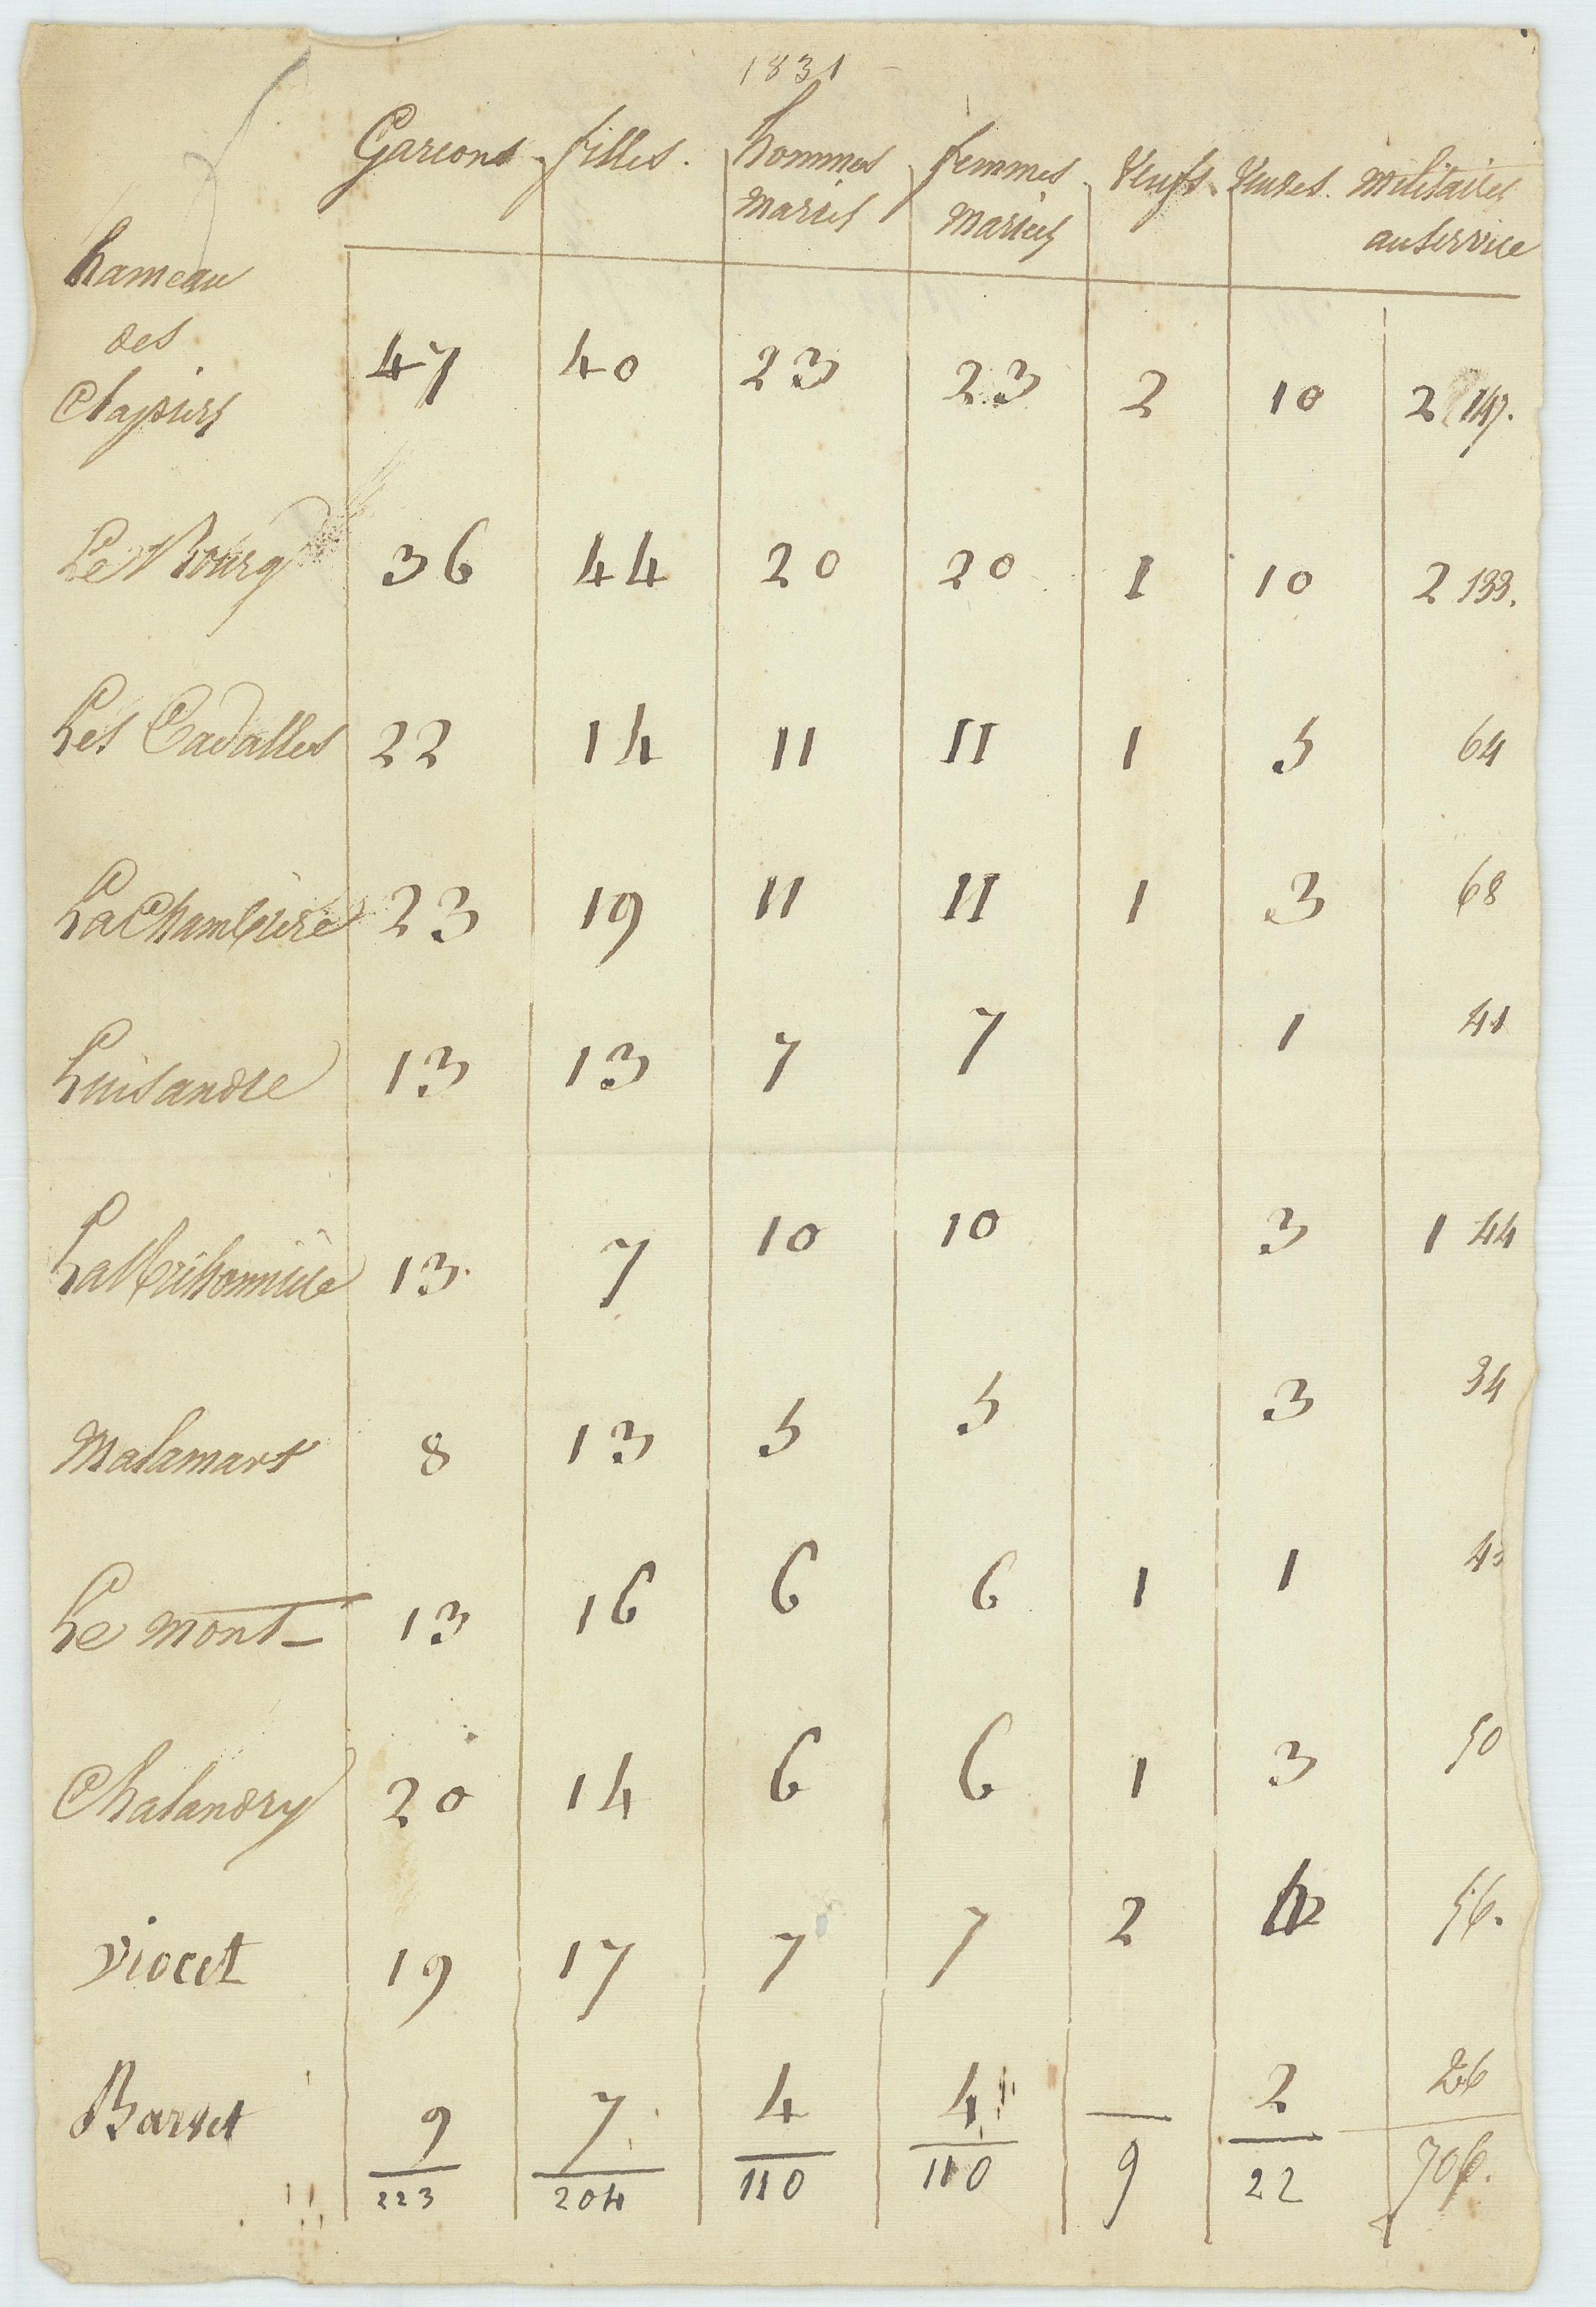 1831
Garcons filles. hommes femmes Veufs Veuves. militaires
mariés mariées au service
hameau
des
Clapiers 47 40 23 23 2 10 2 147.
Le Bourg 36 44 20 20 1 10 2 133.
Les Cadalles 22 14 11 11 1 5 64
La Chambière 23 19 11 11 1 3 68
Luisandre 13 13 7 7 1 41
13 7 10 10 3 1 44
Malamart 8 13 5 5 3 34
Le mont 13 16 6 6 1 1 43
Chalandry 20 14 6 6 1 3 50
Viocet 19 17 7 7 2 56.
Barset 9 7 4 4 2 26
223 204 110 110 9 22 706.